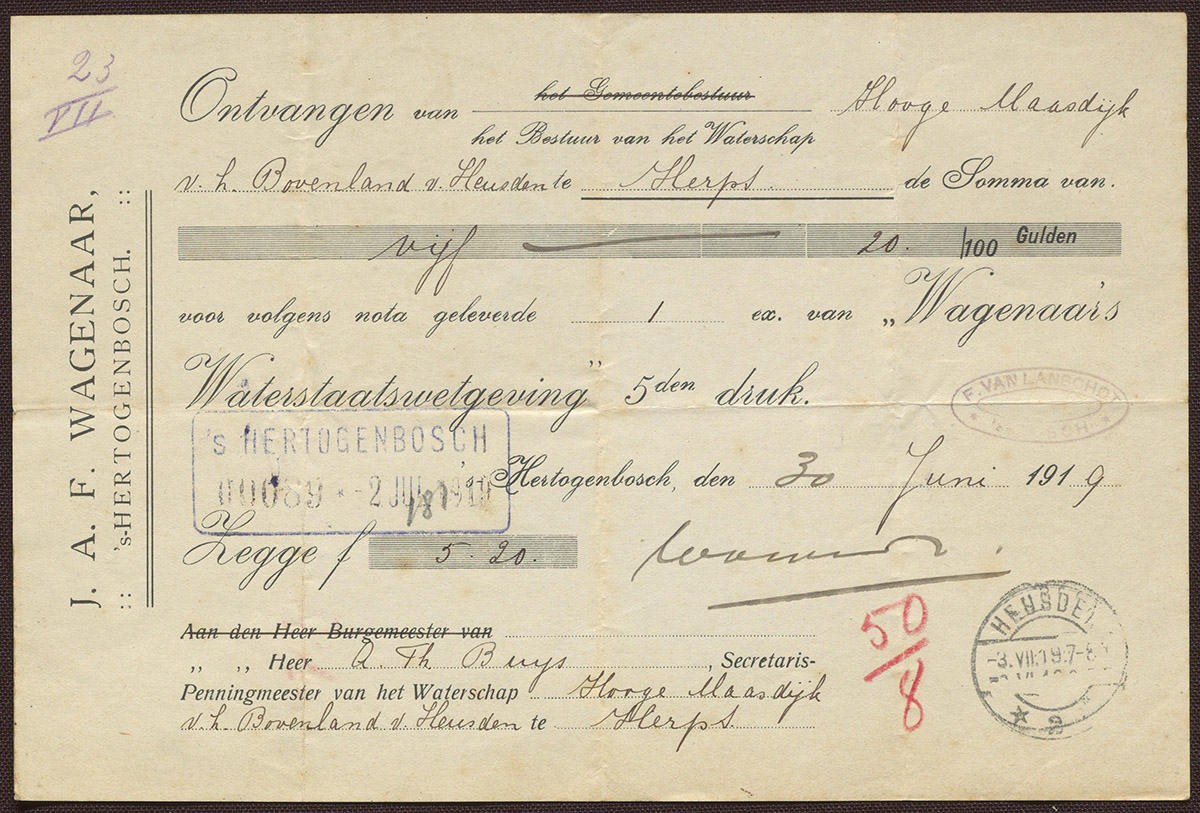 23
VII
J. A. F. WAGENAAR,
:: 's-HERTOGENBOSCH. ::
Ontvangen van het Gemeentebestuur Hooge Maasdijk
het Bestuur van het Waterschap
v. h. Bovenland v. Heusden te Herpt. de Somma van.
vijf 20. /100 Gulden
voor volgens nota geleverde 1 ex. van „Wagenaar's
Waterstaatswetgeving” 5den druk.
F. VAN LANSCHOT
's HERTOGENBOSCH
00089 * -2 JUL 1919
's Hertogenbosch, den 30 Juni 1919
Zegge f 5.20.
50
8
HEUSDEN
-3.VII.19.7-8
Aan den Heer Burgemeester van
„ „ Heer A. Th Buys, Secretaris-
Penningmeester van het Waterschap Hooge Maasdijk
v.h. Bovenland v. Heusden te Herpt.